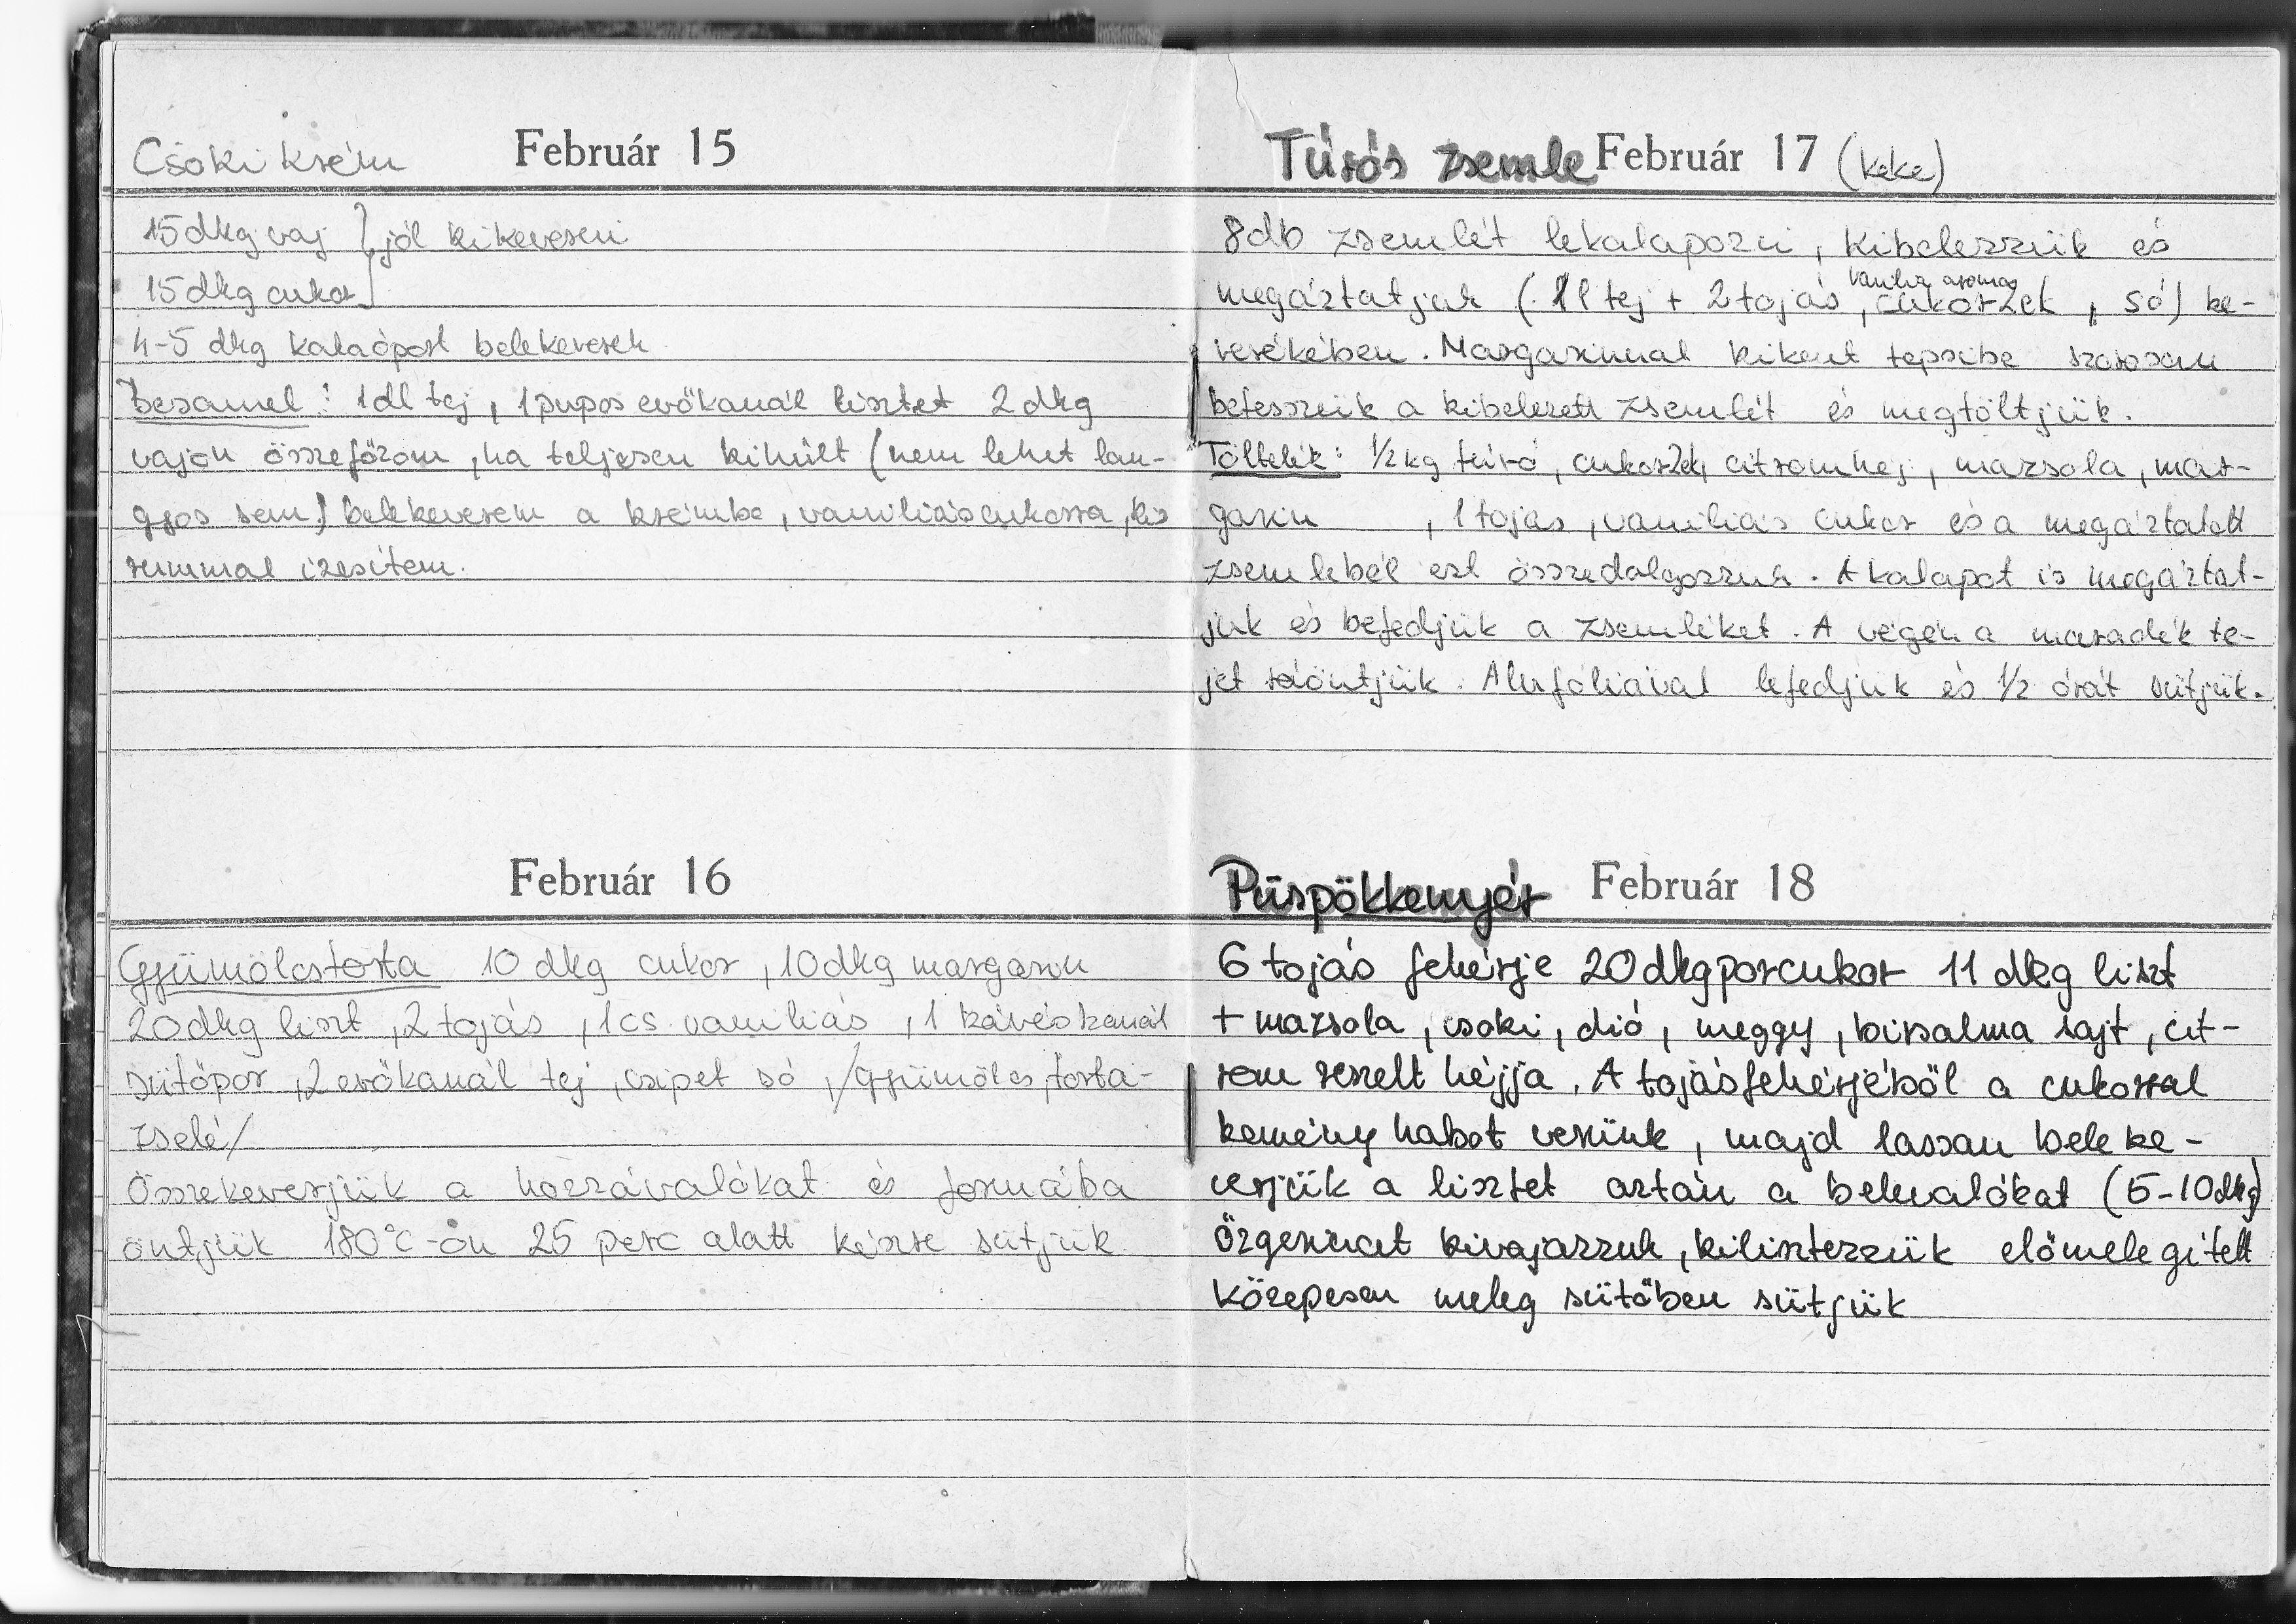 Csoki krém Február 15
15 dkg vaj } jól kikeverem
15 dkg cukor
4-5 dkg kakaóport belekeverek
Besamel : 1dl tej, 1 pupos evőkanál lisztet 2 dkg
vajon összefőzom, ha teljesen kihült (nem lehet lan-
gyos sem!) belekeverem a krémbe, vaniliáscukorra, kis
rummal izesítem.
Február 16
Gyümölcstorta 10 dkg cukor, 10 dkg margarin
20 dkg liszt, 2 tojás, 1 cs. vaniliás, 1 kávéskanál
sütőpor, 2 evőkanál tej, csipet só, /gyümölcs, torta-
zselé/
Összekeverjük a hozzávalókat és formába
öntjük 180°C-on 25 perc alatt készre sütjük
Túrós zsemle Február 17 (Keke)
8 db zsemlét lekalapozni, kibelezzük és
vanilia aromás
megáztatjuk (1 l tej + 2 tojás, cukorzek, só) ke-
verékében. Margarinnal kikent tepsibe szorosan
betesszük a kibelezett zsemlét és megtöltjük.
Töltelék: ½ kg túró, cukorzek, citromhéj, mazsola, mar-
garin , 1 tojás, vaniliás cukor és a megáztatott
zsemlebél ezt összedolgozzuk. A kalapot is megáztat-
juk és befedjük a zsemléket. A végén a maradék te-
jet ráöntjük. Alufóliával lefedjük és ½ órát sütjük.
Püspökkenyér Február 18
6 tojás fehérje 20 dkg porcukor 11 dkg liszt
+ mazsola, csoki, dió, meggy, birsalma sajt, cit-
rom reszelt héjja. A tojásfehérjéből a cukorral
kemény habot verünk, majd lassan beleke-
verjük a lisztet aztán a belevalókat (5-10 dkg)
Őzgerincet kivajazzuk, kilisztezzük előmelegített
közepesen meleg sütőben sütjük